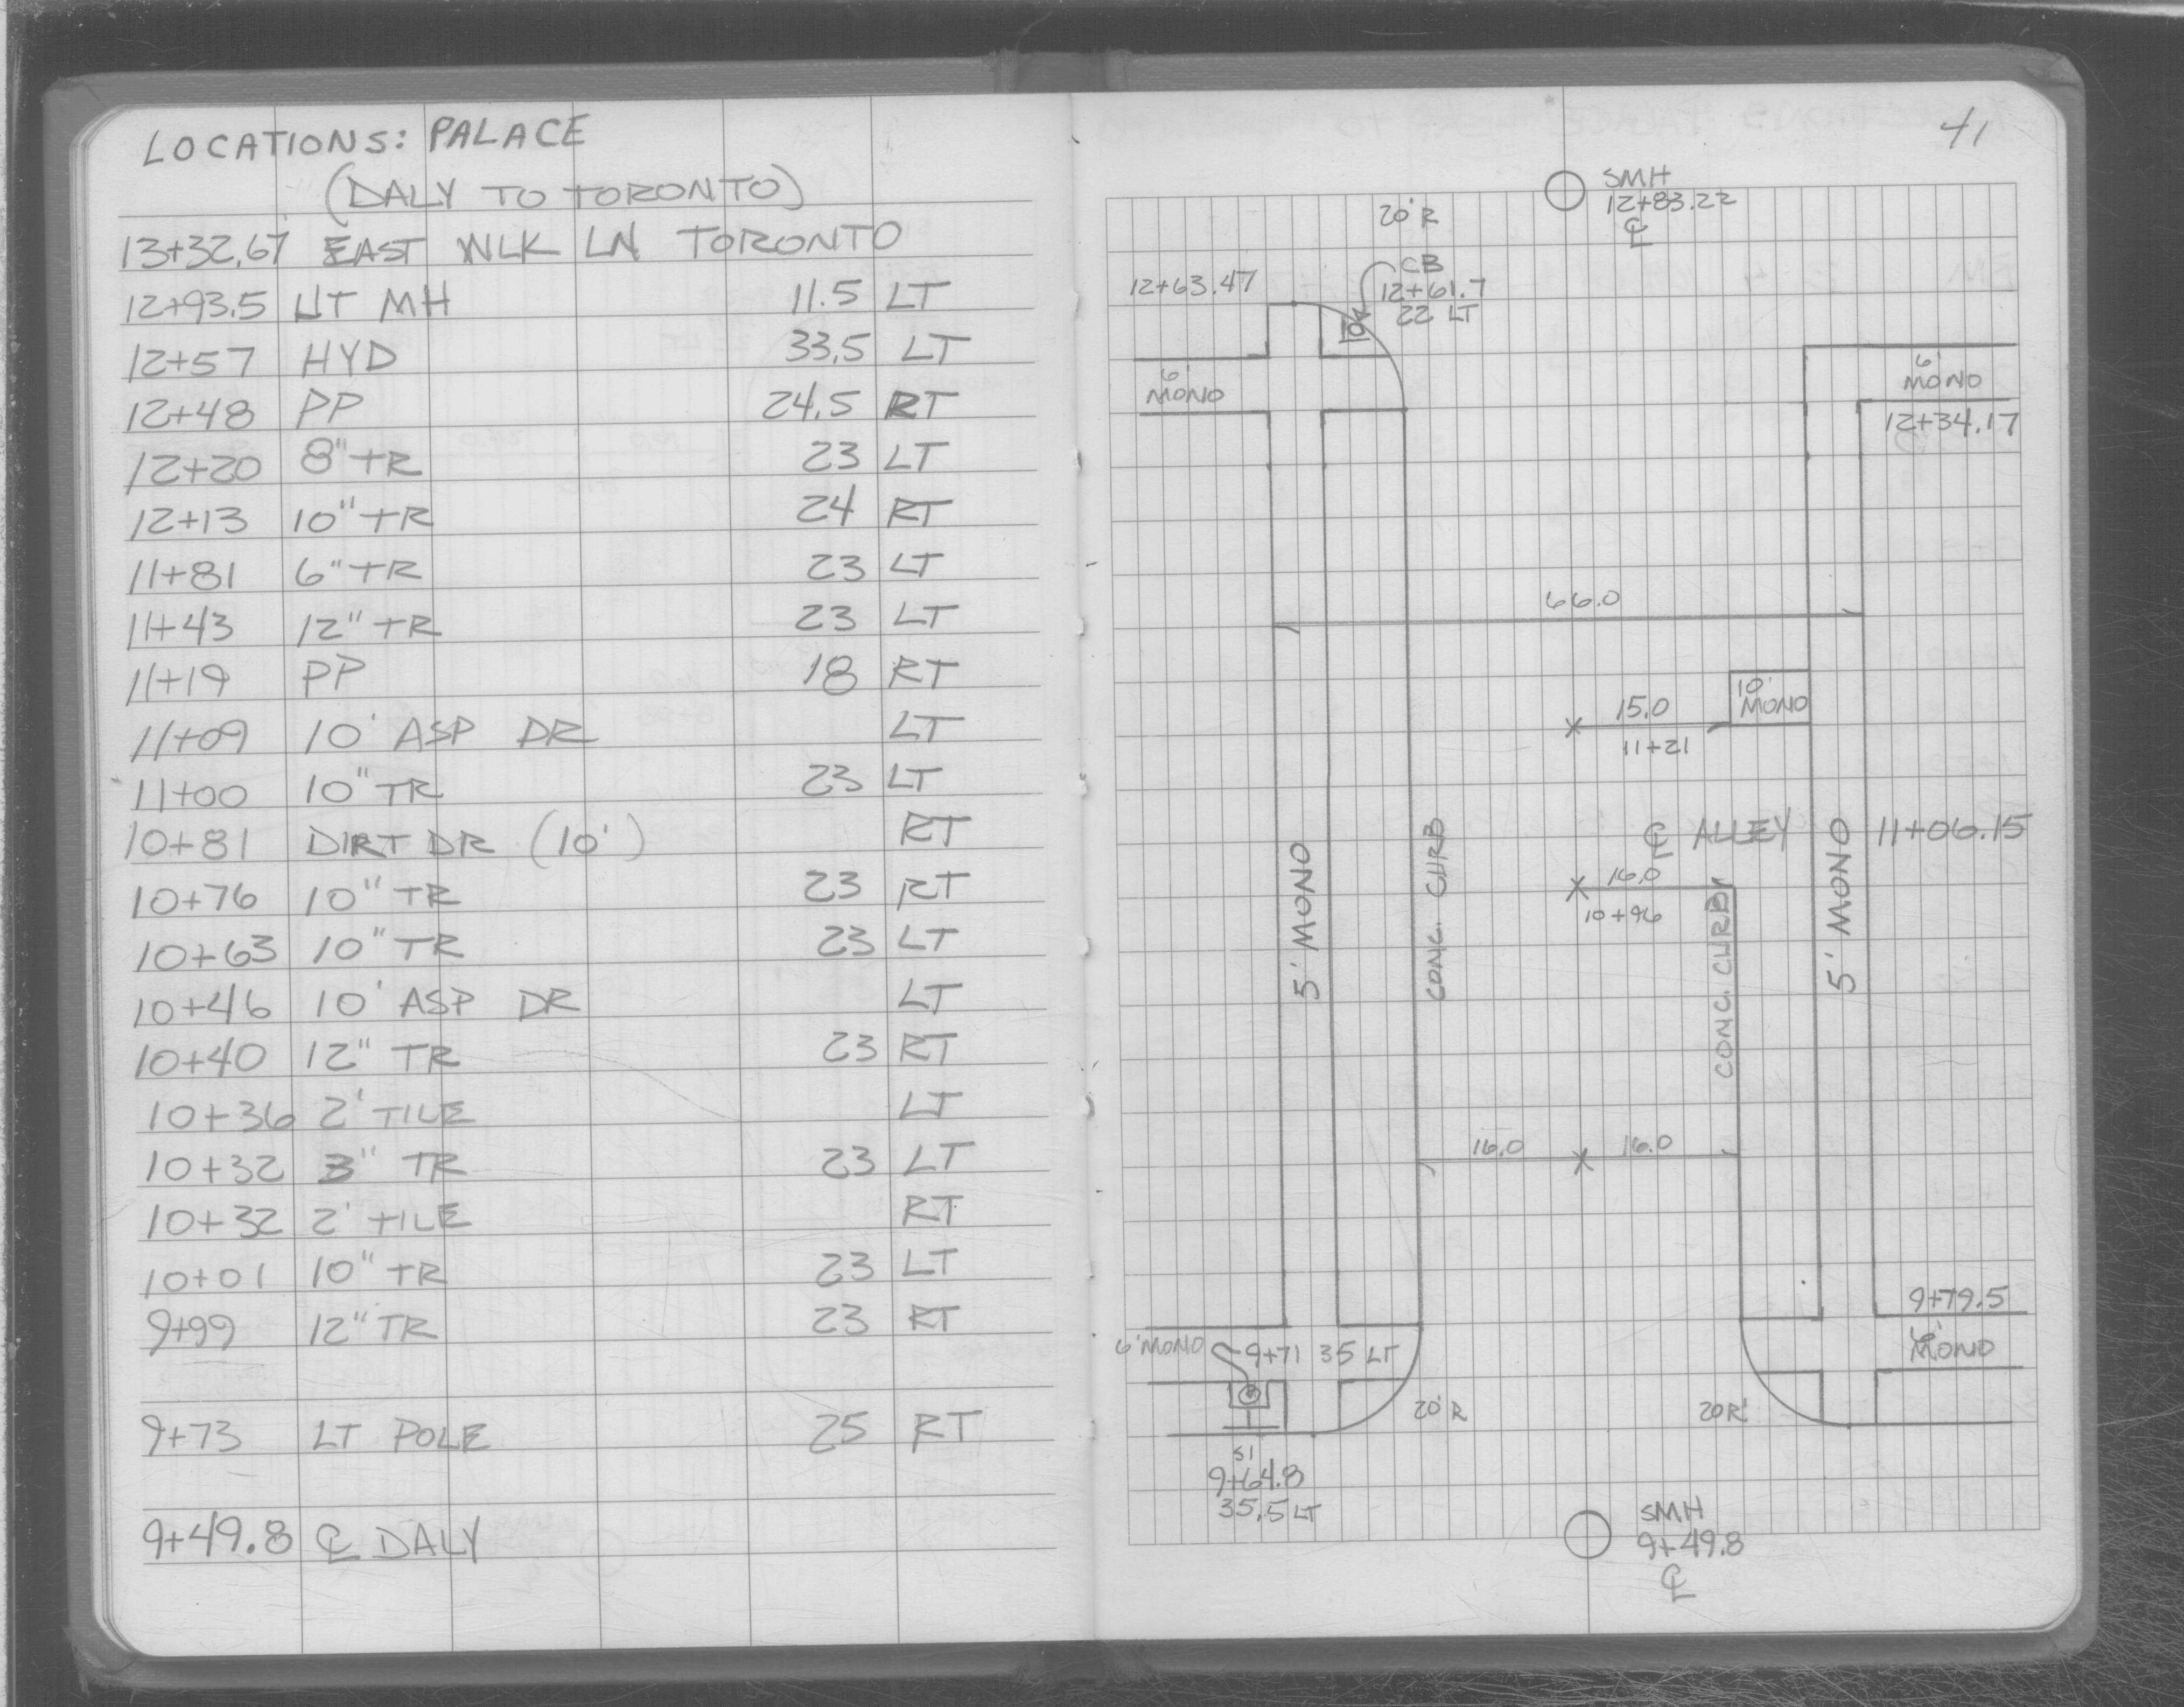 LOCATIONS: PALACE
(DALY TO TORONTO)
13+32.67 EAST WLK LN TORONTO
12+93.5 UT MH 11.5 LT
12+57 HYD 33.5 LT
12+48 PP 24.5 RT
12+20 8" TR 23 LT
12+13 10" TR 24 RT
11+81 6" TR 23 LT
11+43 12" TR 23 LT
11+19 PP 18 RT
11+09 10' ASP DR LT
11+00 10" TR 23 LT
10+81 DIRT DR (10') RT
10+76 10" TR 23 RT
10+63 10" TR 23 LT
10+46 10' ASP DR LT
10+40 12" TR 23 RT
10+36 2' TILE LT
10+32 3" TR 23 LT
10+32 2' TILE RT
10+01 10" TR 23 LT
9+99 12" TR 23 RT
9+73 LT POLE 25 RT
9+49.8 ℄ DALY
41
SMH
12+83.22
℄
20' R
CB
12+61.7
22 LT
12+63.47
6'
MONO
6'
MONO
12+34.17
66.0
10'
MONO
15.0
11+21
℄ ALLEY 11+06.15
16.0
10+96
5' MONO
CONC. CURB
CONC. CURB
5' MONO
16.0 16.0
9+79.5
6'
MONO
6' MONO 9+71 35 LT
20' R
20R'
S1
9+64.8
35.5 LT
SMH
9+49.8
℄